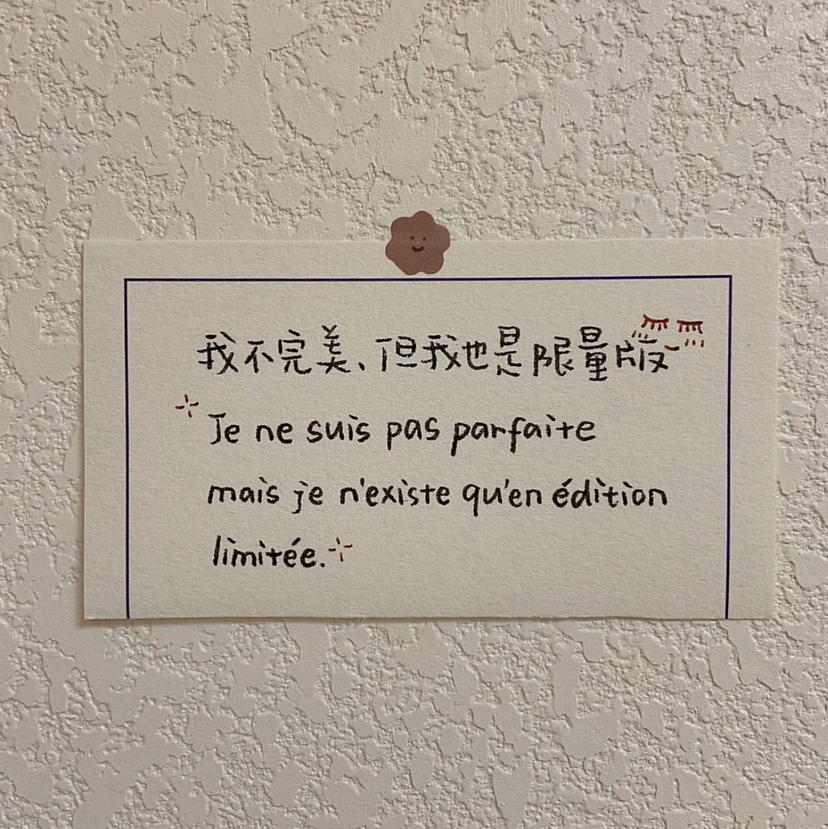 我不完美、但我也是限量版
Je ne suis pas parfaite
mais je n'existe qu'en édition
limitée.